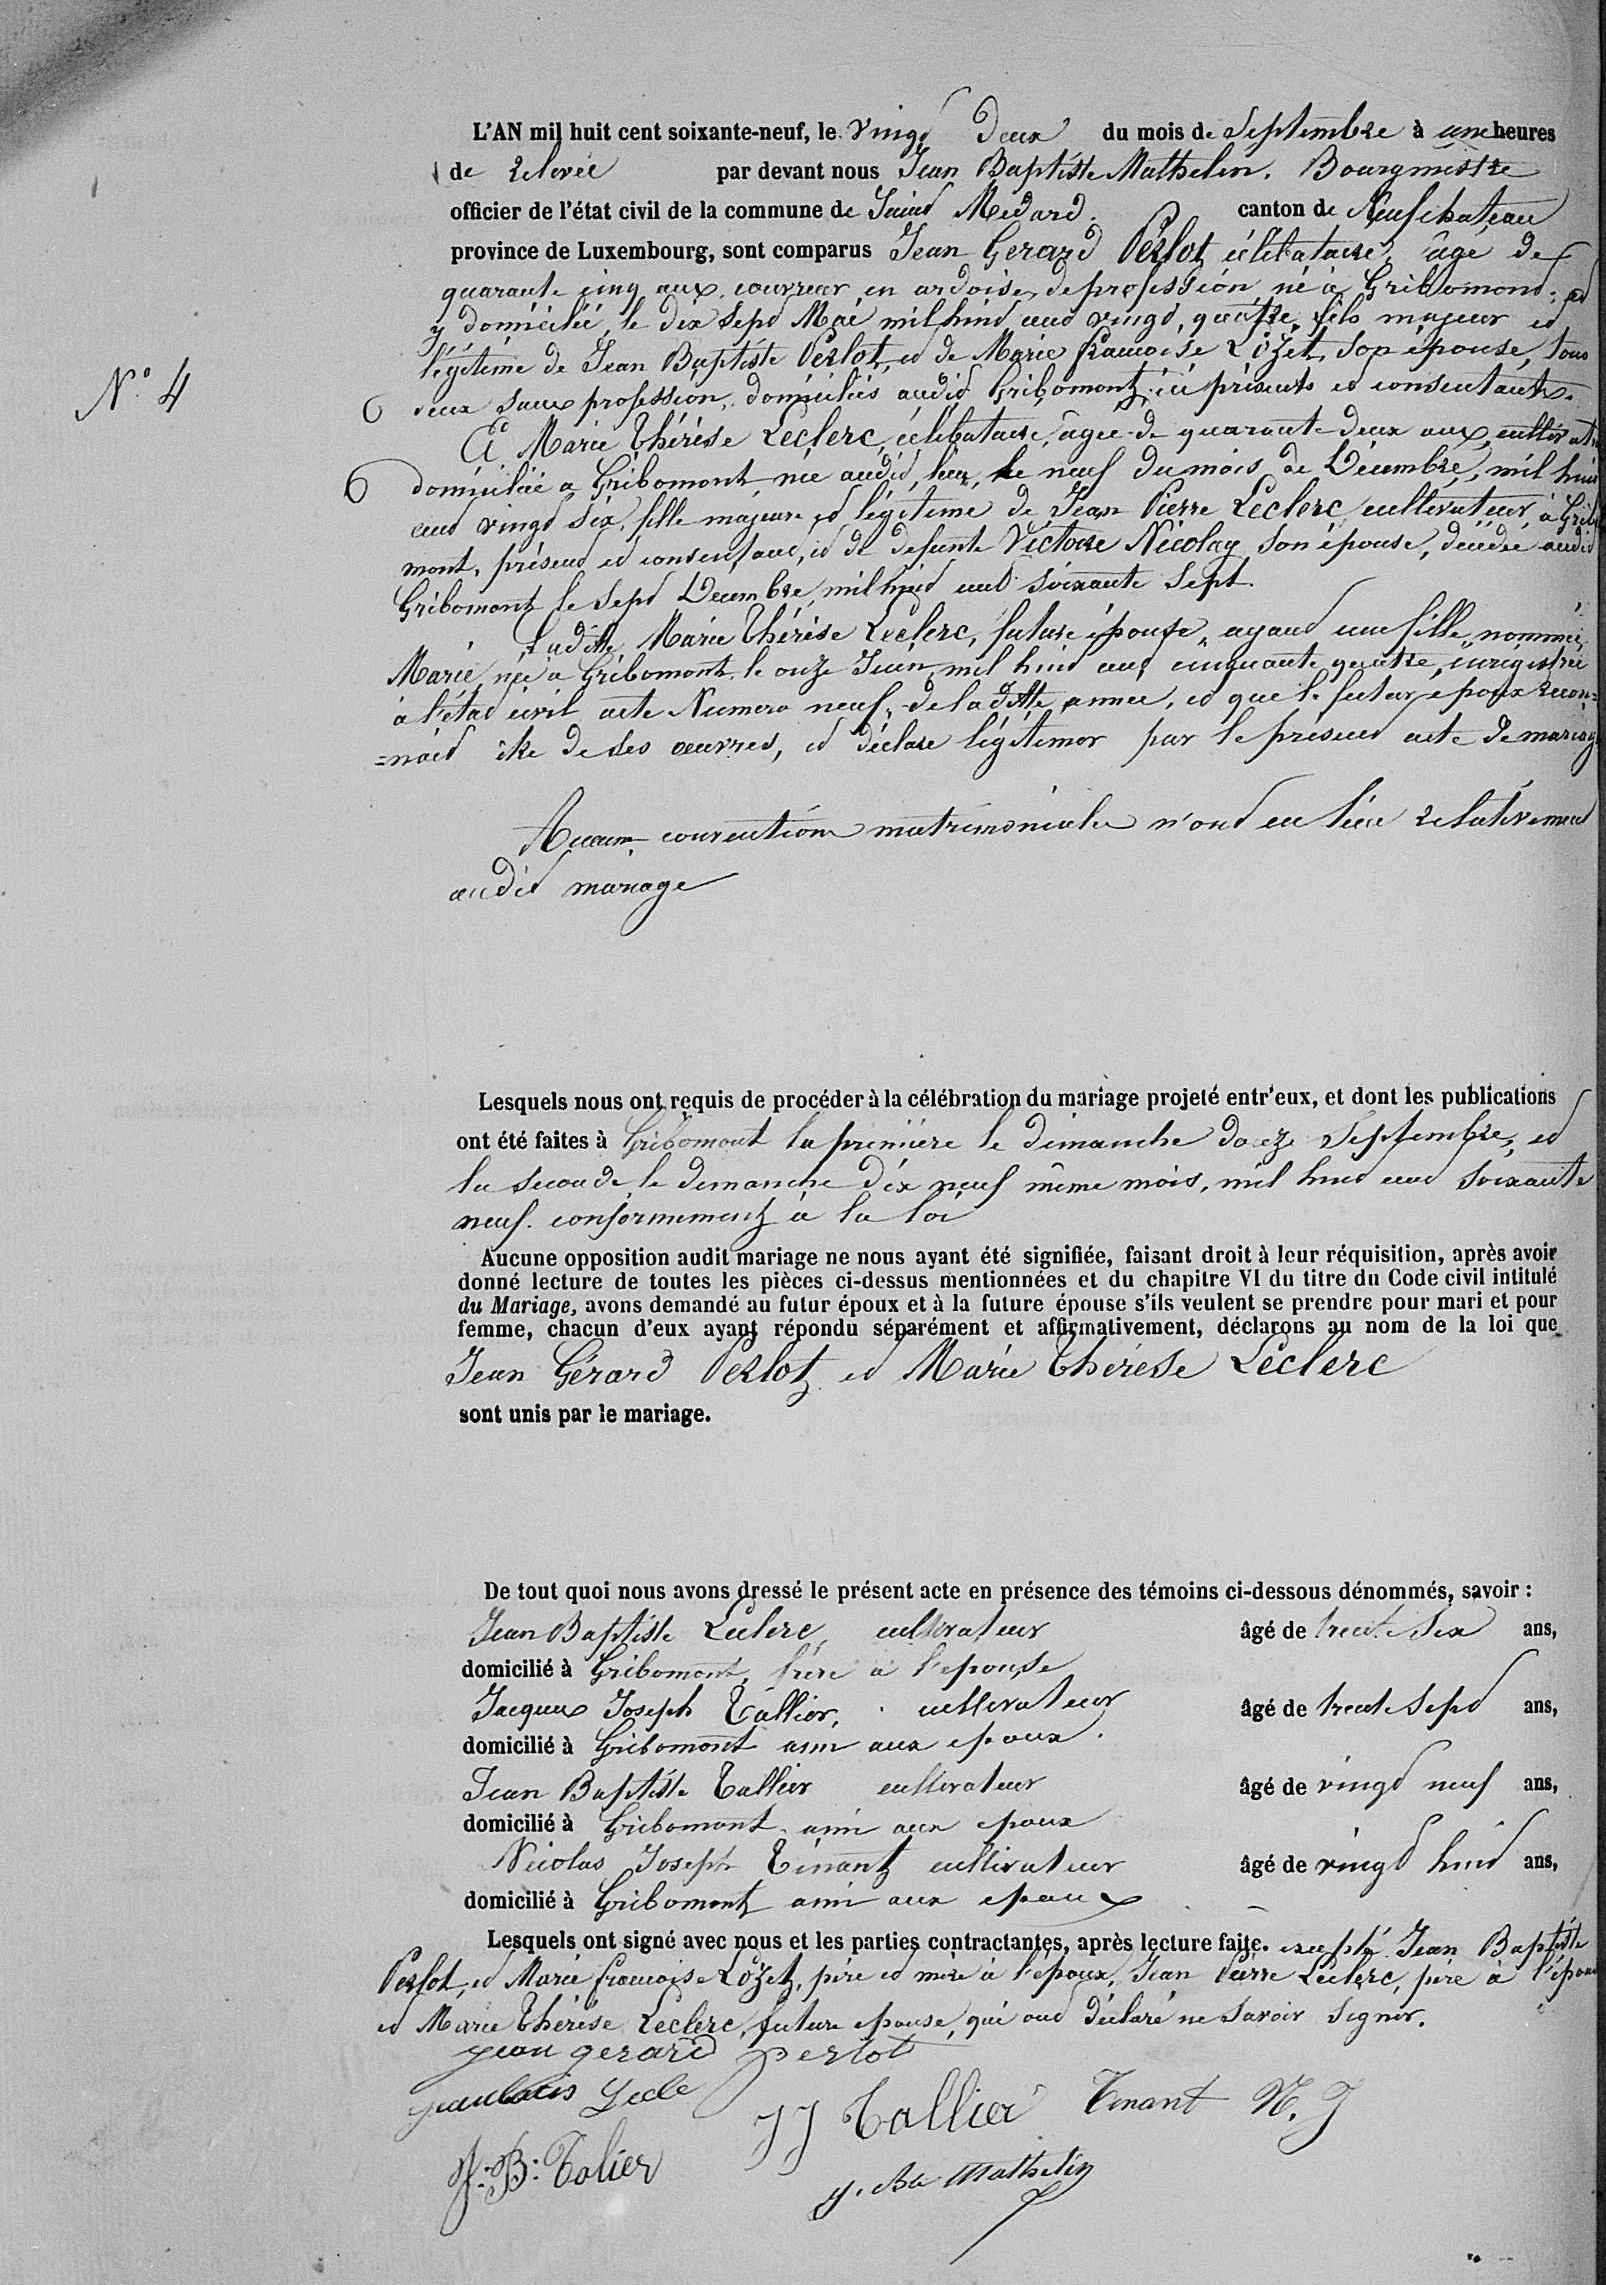 L'AN mil huit cent soixante-neuf, le vingt Deux du mois de Septembre à une heures
de relevée par devant nous Jean Baptiste Mathelin. Bourgmestre
officier de l'état civil de la commune de Saint Médard. canton de Neufchateau
province de Luxembourg, sont comparus Jean Gerard Perlot célibataire, âgé de
quarante cinq ans, couvreur en ardoises, de profession, né à Gribomont, et
y domicilié, le dix Sept Mai mil huit cent vingt, quatre, fils majeur et
légitime de Jean Baptiste Perlot, et de Marie francoise Lozet, son épouse, tous
N° 4
deux sans profession, domiciliés audit Gribomont, ici présents et consentants.
Et Marie Thérèse Leclerc, célibataire, âgée de quarante deux ans, cultivat
domiciliée à Gribomont, née audit, lieu, le neuf du mois de Décembre, mil huit
cent vingt six, fille majeure et légitime de Jean Pierre Leclerc, cultivateur, à Gribo
mont, présent et consentant, et de defunte Victoire Nicolay son épouse, décédée audit
Gribomont, le Sept Decembre, mil huit cent soixante Sept.
Ladite Marie Thérèse Leclerc, future épouse, ayant une fille, nommée,
Marie, née à Gribomont, le onze Juin, mil huit cent cinquante quatre, enregistrée
à l'état civil acte Numero neuf, de laditte année, et que le futur époux recon=
=nait être de ses œuvres, et déclare légitimer par le présent acte de mariag
Aucune convention matrimoniale n'ont eu lieu relativement
audit mariage
Lesquels nous ont requis de procéder à la célébration du mariage projeté entr'eux, et dont les publications
ont été faites à Gribomont la première le dimanche douze Septembre, et
la seconde, le dimanche dix neuf même mois, mil huit cent soixante
neuf. conformement à la loi
Aucune opposition audit mariage ne nous ayant été signifiée, faisant droit à leur réquisition, après avoir
donné lecture de toutes les pièces ci-dessus mentionnées et du chapitre VI du titre du Code civil intitulé
du Mariage, avons demandé au futur époux et à la future épouse s'ils veulent se prendre pour mari et pour
femme, chacun d'eux ayant répondu séparément et affirmativement, déclarons au nom de la loi que
Jean Gérard Perlot et Marie Thérèse Leclerc
sont unis par le mariage.
De tout quoi nous avons dressé le présent acte en présence des témoins ci-dessous dénommés, savoir :
Jean Baptiste Leclerc, cultivateur âgé de trente Six ans,
domicilié à Gribomont, frère à l'epouse
Jacques Joseph Tallier, cultivateur âgé de trente Sept ans,
domicilié à Gribomont ami aux epoux.
Jean Baptiste Tallier cultivateur âgé de vingt neuf ans,
domicilié à Gribomont, ami aux epoux
Nicolas Joseph Tinant cultivateur âgé de vingt huit ans,
domicilié à Gribomont ami aux epoux
Lesquels ont signé avec nous et les parties contractantes, après lecture faite. excepté Jean Baptiste
Perlot, et Marie francoise Lozet, père et mère à l'époux, Jean Pierre Leclerc, père à l'épouse
et Marie Thérèse Leclerc, future epouse, qui ont déclaré ne Savoir Signer.
jean gerard perlot
JJ Tallier Tinant N. J
J: B: Talier
J. Bte Mathelin